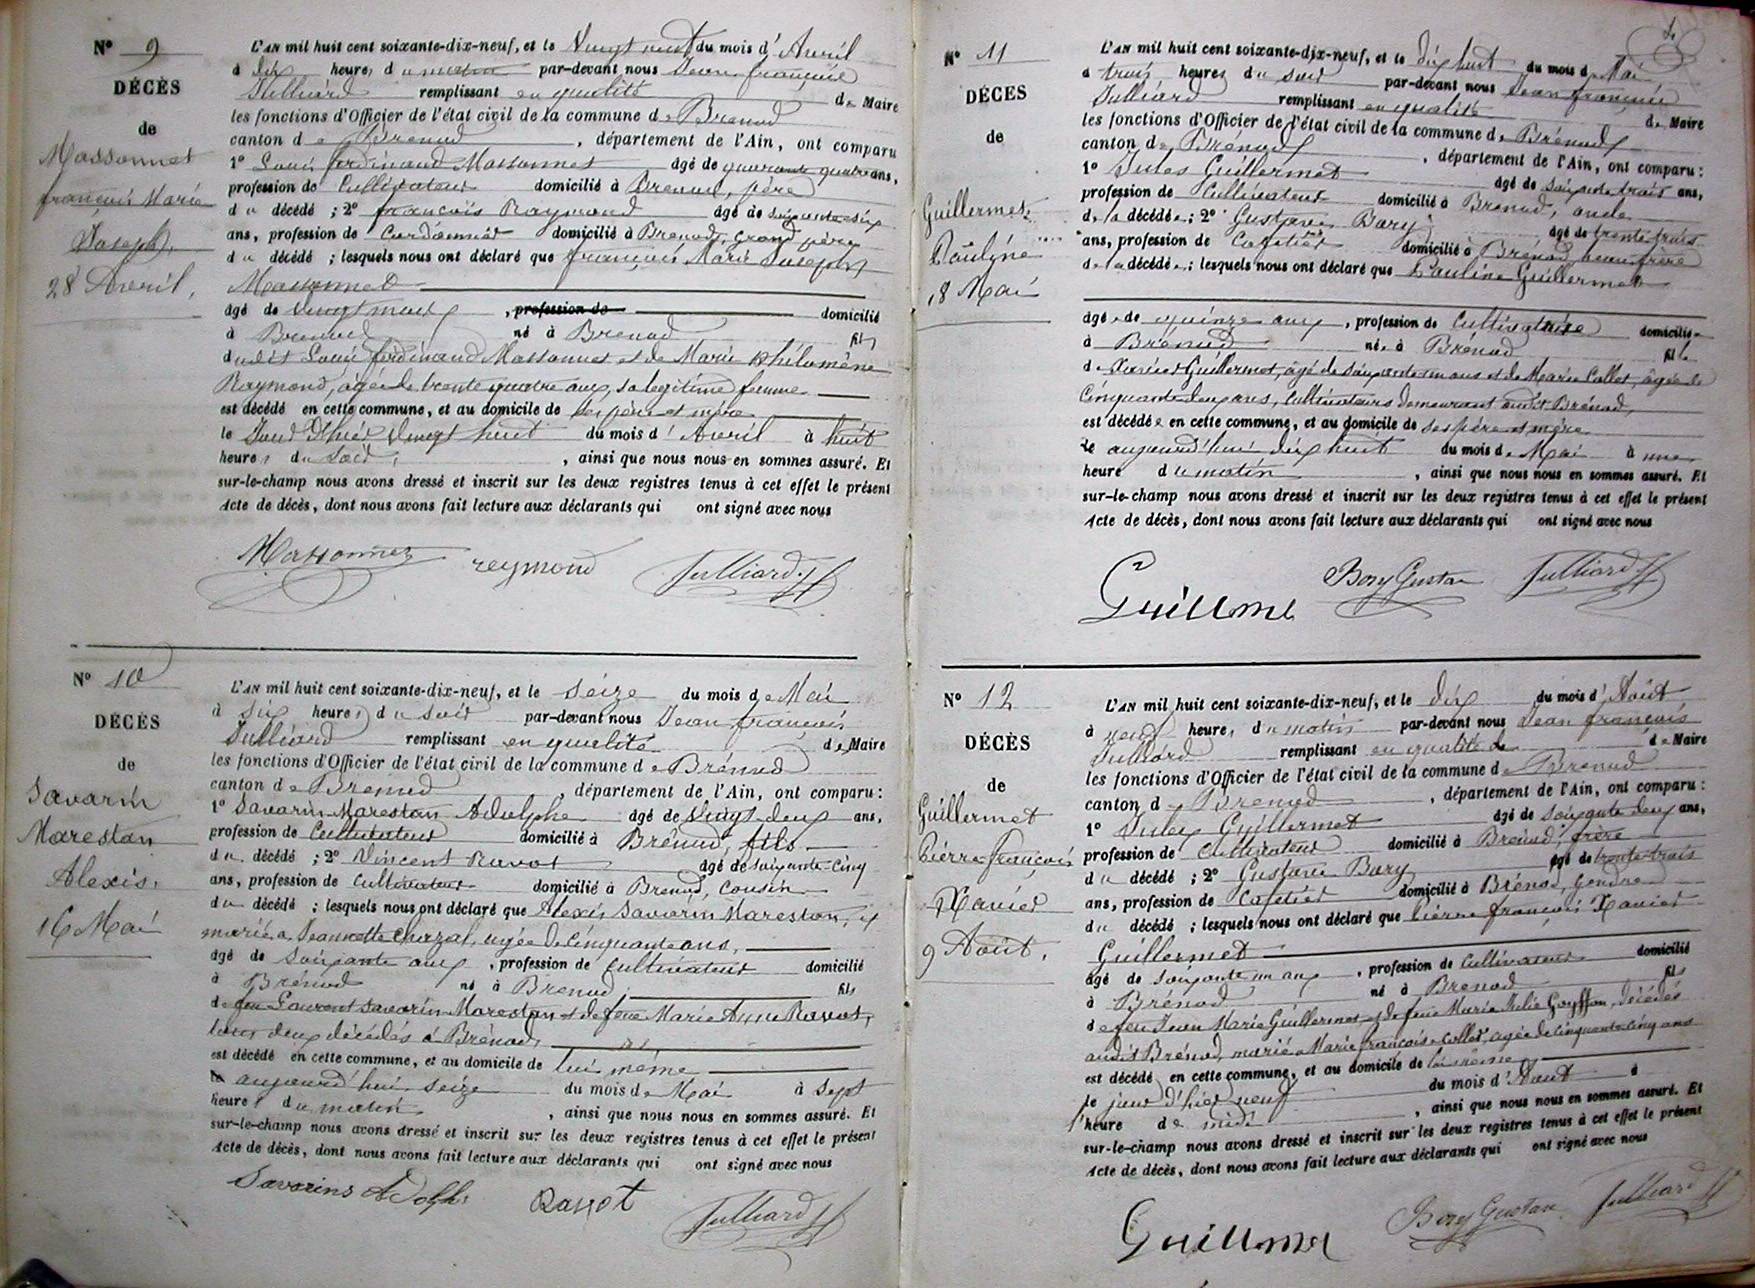 N° 9
DÉCÈS
de
Massonnet
françois Marie
Joseph,
28 Avril,
L'AN mil huit cent soixante-dix-neuf, et le Vingt neuf du mois d' Avril
à dix heures du matin par-devant nous Jean françois
Julliard remplissant en qualité de Maire
les fonctions d'Officier de l'état civil de la commune de Brenod
canton de Brenod, département de l'Ain, ont comparu
1° Louis ferdinand Massonnet âgé de quarante quatre ans,
profession de Cultivateur domicilié à Brenod, père
du décédé ; 2° françois Raymond âgé de soixante six
ans, profession de Cordonnier domicilié à Brenod, grand père
du décédé ; lesquels nous ont déclaré que françois Marie Joseph
Massonnet
âgé de vingt mois, profession de domicilié
à Brenod né à Brenod fils
dudit Louis ferdinand Massonnet et de Marie Philomène
Raymond, âgée de trente quatre ans, sa legitime femme
est décédé en cette commune, et au domicile de ses père et mère
le Jour d'hier Vingt huit du mois d' Avril à huit
heures du soir, ainsi que nous nous en sommes assuré. Et
sur-le-champ nous avons dressé et inscrit sur les deux registres tenus à cet effet le présent
Acte de décès, dont nous avons fait lecture aux déclarants qui ont signé avec nous
Massonnez reymond Julliard
N° 10
DÉCÈS
de
Savarin
Marestan
Alexis.
16 Mai
L'AN mil huit cent soixante-dix-neuf, et le Seize du mois de Mai
à Six heures du soir par-devant nous Jean françois
Julliard remplissant en qualité de Maire
les fonctions d'Officier de l'état civil de la commune de Brénod
canton de Brénod, département de l'Ain, ont comparu :
1° Savarin Marestan Adolphe âgé de Vingt-deux ans,
profession de Cultivateur domicilié à Brénod, fils
du décédé ; 2° Vincent Ravot âgé de soixante-cinq
ans, profession de Cultivateur domicilié à Brenod, Cousin
du décédé ; lesquels nous ont déclaré que Alexis Savarin Marestan,
marié à Jeannette Chazal, âgée de cinquante ans,
âgé de soixante ans, profession de Cultivateur domicilié
à Brénod né à Brenod fils
de feu Laurent Savarin Marestan et de feue Marie Anne Ravot,
tous deux décédés à Brénod,
est décédé en cette commune, et au domicile de lui même
le aujourd'hui seize du mois de Mai à sept
heures du matin, ainsi que nous nous en sommes assuré. Et
sur-le-champ nous avons dressé et inscrit sur les deux registres tenus à cet effet le présent
Acte de décès, dont nous avons fait lecture aux déclarants qui ont signé avec nous
Savarins Adolph. Ravot Julliard
N° 11
DÉCÈS
de
Guillermet
Pauline
18 Mai
L'AN mil huit cent soixante-dix-neuf, et le dix huit du mois de Mai
à trois heures du soir par-devant nous Jean françois
Julliard remplissant en qualité de Maire
les fonctions d'Officier de l'état civil de la commune de Brénod
canton de Brénod, département de l'Ain, ont comparu :
1° Jules Guillermet âgé de soixante trois ans,
profession de Cultivateur domicilié à Brenod, oncle
de la décédée ; 2° Gustave Bory âgé de trente trois
ans, profession de Cafetier domicilié à Brénod, beau frère
de la décédée ; lesquels nous ont déclaré que Pauline Guillermet
âgée de quinze ans, profession de Cultivatrice domiciliée
à Brénod née à Brénod fille
de Xavier Guillermet, âgé de soixante un ans et de Marie Collet, âgée de
Cinquante deux ans, Cultivateurs demeurant audit Brénod,
est décédée en cette commune, et au domicile de ses père et mère
le aujourd'hui dix huit du mois de Mai à une
heure du matin, ainsi que nous nous en sommes assuré. Et
sur-le-champ nous avons dressé et inscrit sur les deux registres tenus à cet effet le présent
Acte de décès, dont nous avons fait lecture aux déclarants qui ont signé avec nous
Guillme Bory Gustav Julliard
N° 12
DÉCÈS
de
Guillermet
Pierre françois
Xavier
9 Août.
L'AN mil huit cent soixante-dix-neuf, et le dix du mois d' Août
à neuf heures du matin par-devant nous Jean françois
Julliard remplissant en qualité de de Maire
les fonctions d'Officier de l'état civil de la commune de Brenod
canton de Brenod, département de l'Ain, ont comparu :
1° Jules Guillermet âgé de soixante deux ans,
profession de Cultivateur domicilié à Brénod, frère
du décédé ; 2° Gustave Bory âgé de trente trois
ans, profession de Cafetier domicilié à Brénod, gendre
du décédé ; lesquels nous ont déclaré que Pierre françois Xavier
Guillermet
âgé de soixante un ans, profession de Cultivateur domicilié
à Brénod né à Brenod fils
de feu Jean Marie Guillermet et de feue Marie Julie Goyffon, décédés
audit Brénod, marié à Marie françoise Collet, agée de cinquante cinq ans
est décédé en cette commune, et au domicile de lui même
le jour d'hier neuf du mois d' Août à
1 heure de midi, ainsi que nous nous en sommes assuré. Et
sur-le-champ nous avons dressé et inscrit sur les deux registres tenus à cet effet le présent
Acte de décès, dont nous avons fait lecture aux déclarants qui ont signé avec nous
Guillmer Bory Gustav Julliard